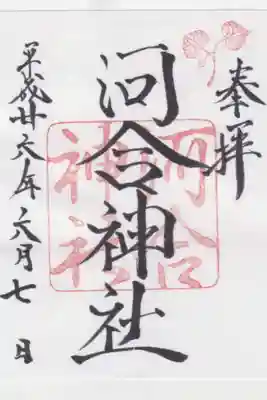 奉拝
河合神社
河合
神社
平成廿六年六月七日